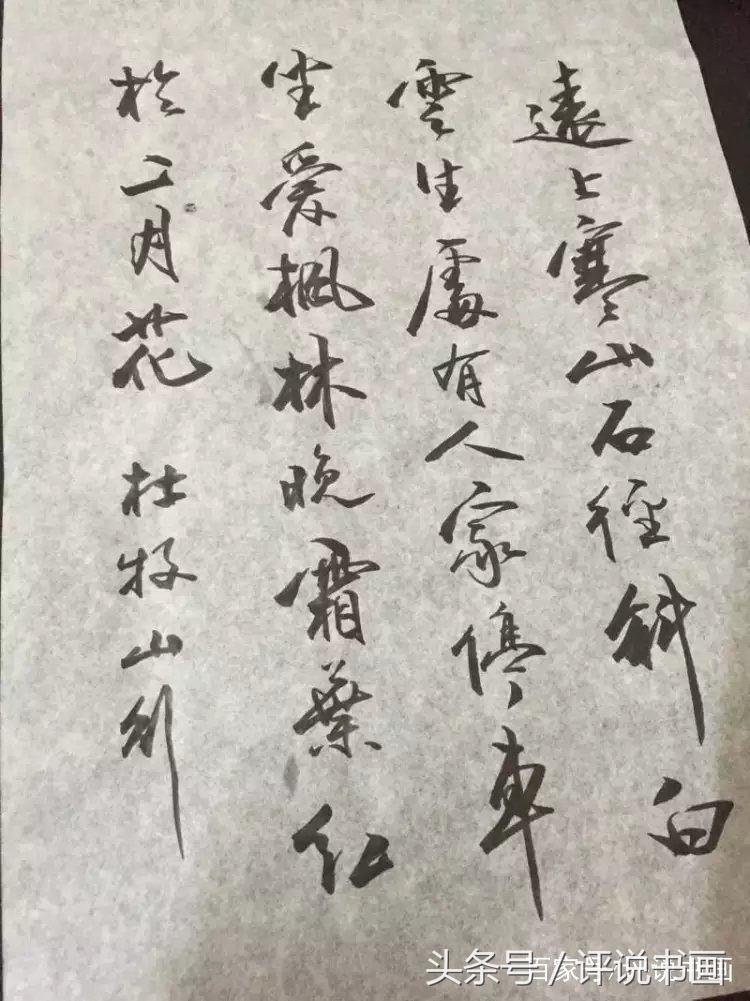 遠上寒山石徑斜白
雲生處有人家停車
坐愛楓林晚霜葉紅
於二月花 杜牧山行
头条号/评说书画